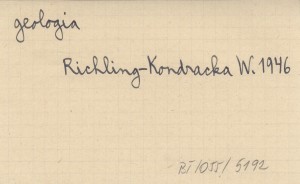 geologia
Richling-Kondracka W. 1946
5192